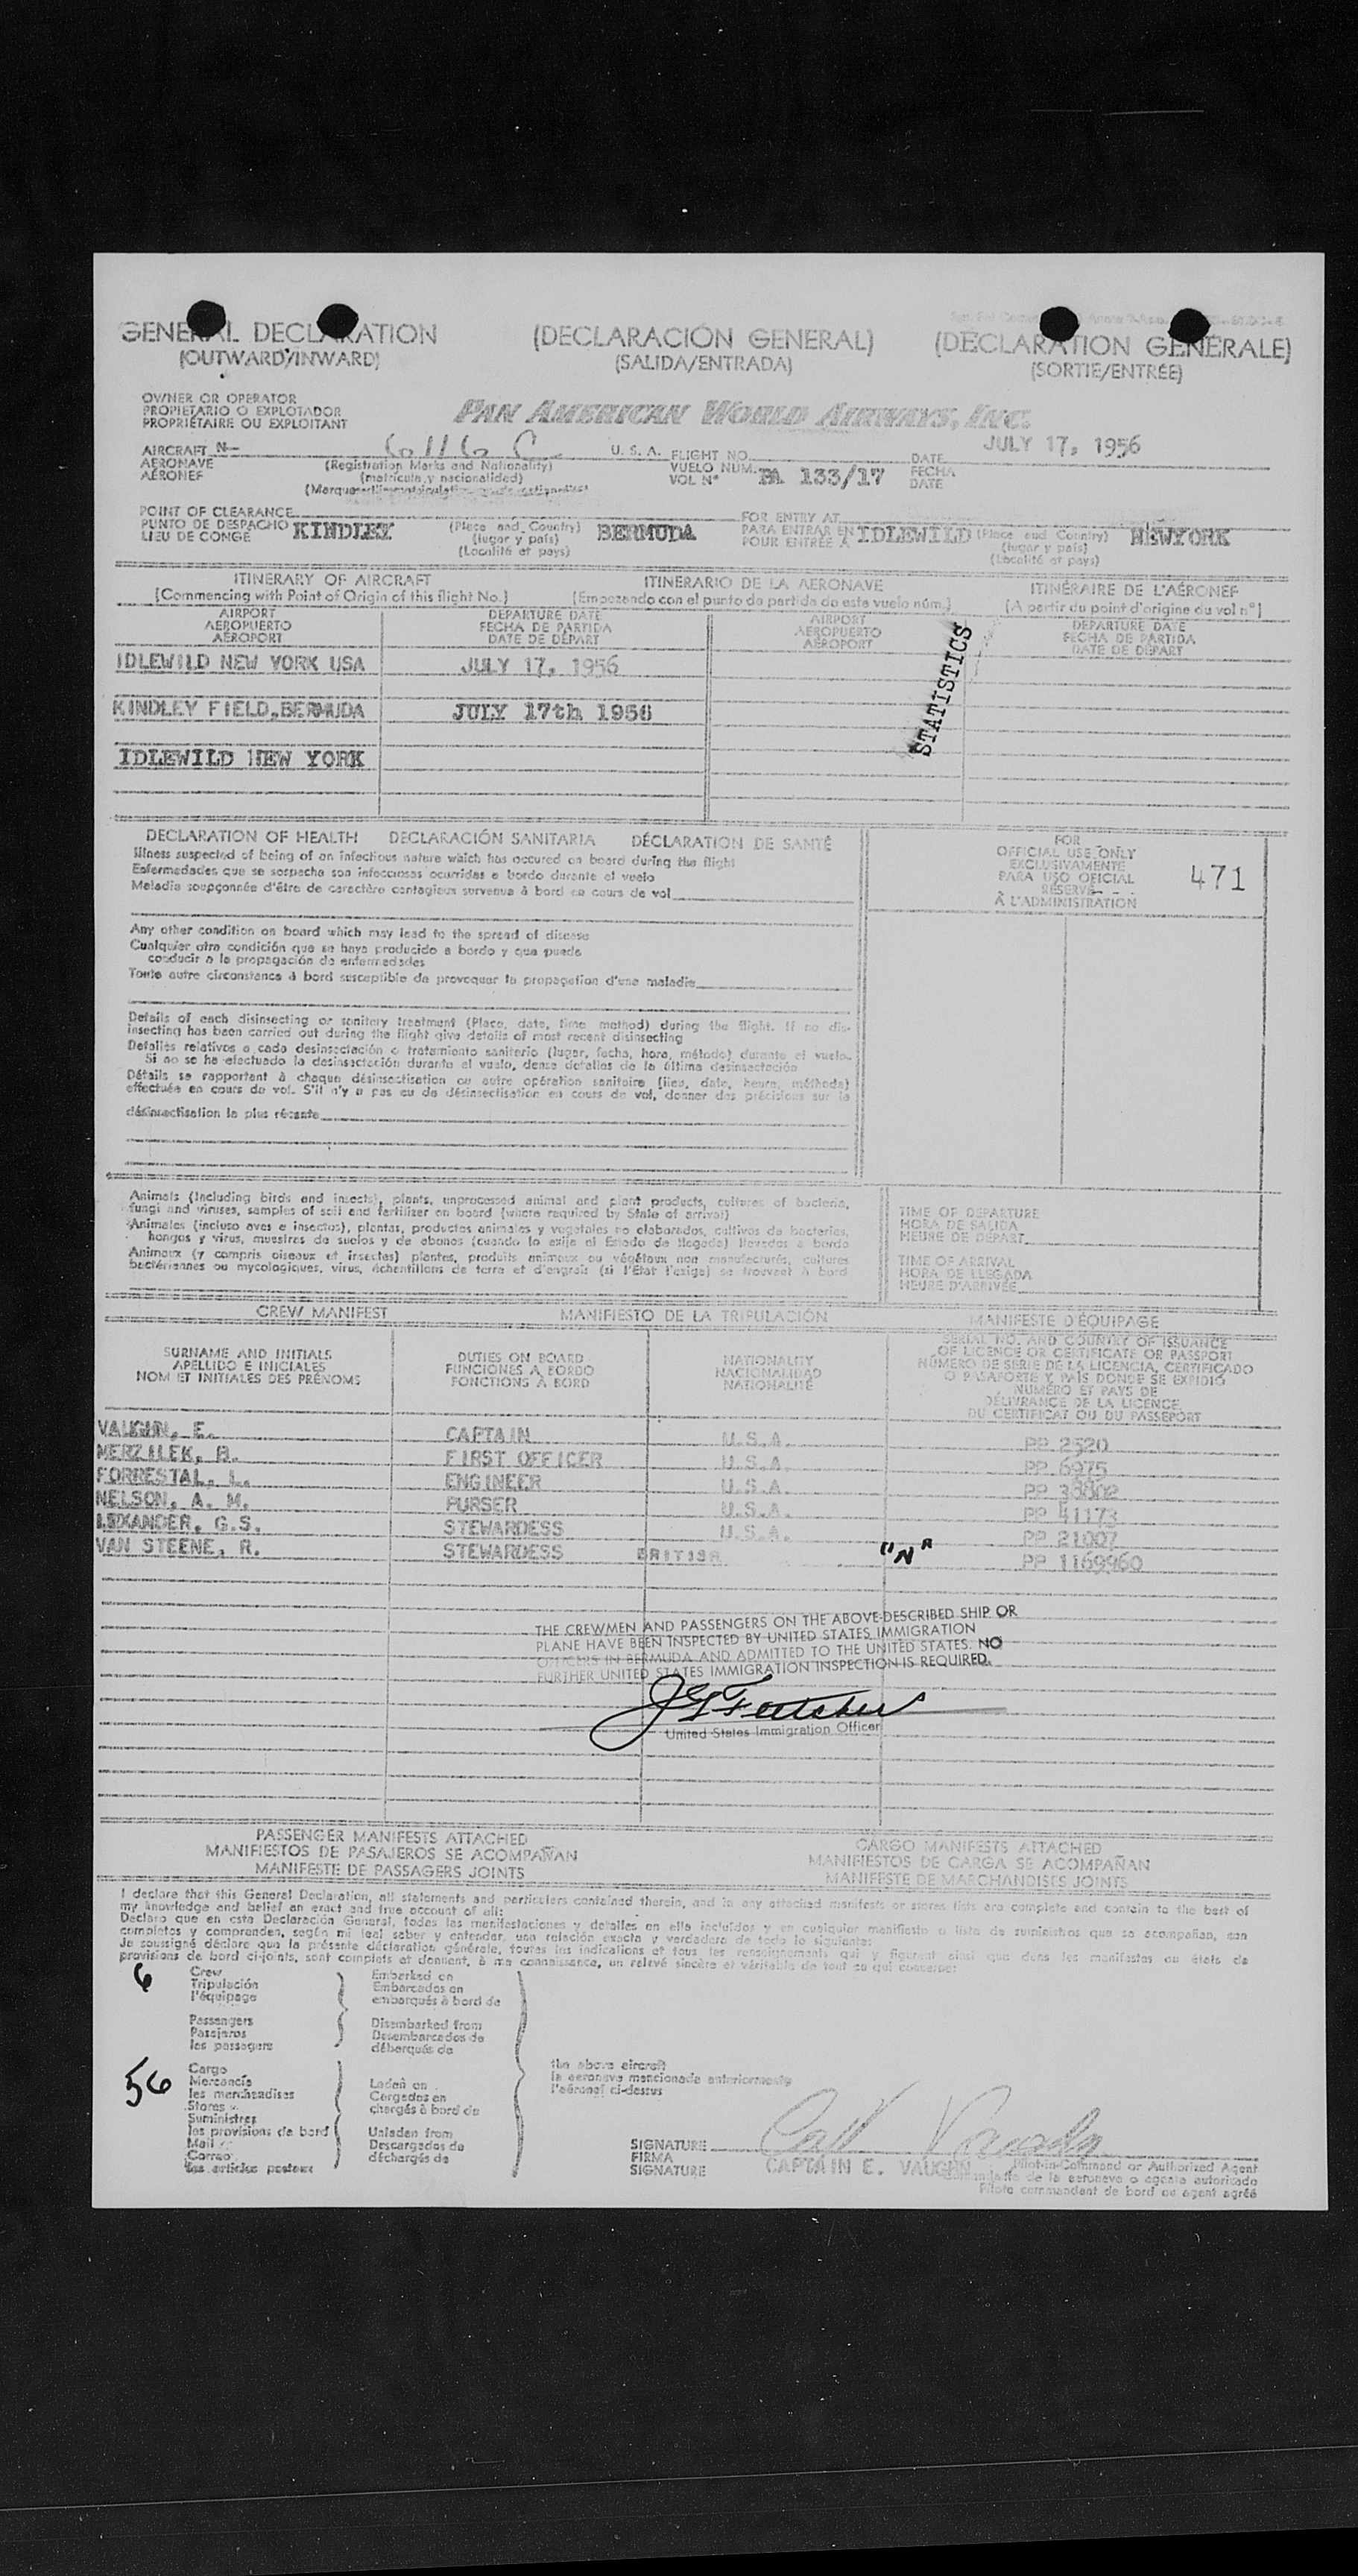 GENERAL DECLARATION (DECLARACIÓN GENERAL) (DÉCLARATION GÉNÉRALE)
(OUTWARD/INWARD) (SALIDA/ENTRADA) (SORTIE/ENTRÉE)
OWNER OR OPERATOR
PROPIETARIO O EXPLOTADOR PAN AMERICAN WORLD AIRWAYS, INC.
PROPRIÉTAIRE OU EXPLOITANT
AIRCRAFT N- 6116 C U. S. A. FLIGHT NO. DATE JULY 17, 1956
AERONAVE (Registration Marks and Nationality) VUELO NUM. PA 133/17 FECHA
AÉRONEF (matrícula y nacionalidad) VOL N° DATE
POINT OF CLEARANCE FOR ENTRY AT
PUNTO DE DESPACHO KINDLEY (Place and Country) BERMUDA PARA ENTRAR EN IDLEWILD (Place and Country) NEWYORK
LIEU DE CONGÉ (lugar y país) POUR ENTRÉE À (lugar y país)
(Localité et pays) (Localité et pays)
ITINERARY OF AIRCRAFT ITINERARIO DE LA AERONAVE ITINÉRAIRE DE L'AÉRONEF
(Commencing with Point of Origin of this flight No.) (Empezando con el punto de partida de este vuelo núm.) (A partir du point d'origine du vol n°)
AIRPORT DEPARTURE DATE AIRPORT DEPARTURE DATE
AEROPUERTO FECHA DE PARTIDA AEROPUERTO FECHA DE PARTIDA
AÉROPORT DATE DE DÉPART AÉROPORT DATE DE DÉPART
IDLEWILD NEW YORK USA JULY 17, 1956
KINDLEY FIELD,BERMUDA JULY 17th 1956
IDLEWILD NEW YORK
STATISTICS
DECLARATION OF HEALTH DECLARACIÓN SANITARIA DÉCLARATION DE SANTÉ
Illness suspected of being of an infectious nature which has occured on board during the flight
Enfermedades que se sospecha son infecciosas ocurridas a bordo durante el vuelo
Maladie soupçonnée d'être de caractère contagieux survenue à bord en cours de vol
FOR
OFFICIAL USE ONLY
EXCLUSIVAMENTE
PARA USO OFICIAL 471
RÉSERVÉ
À L'ADMINISTRATION
Any other condition on board which may lead to the spread of disease
Cualquier otra condición que se haya producido a bordo y que puede
conducir a la propagación de enfermedades
Toute autre circonstance à bord susceptible de provoquer la propagation d'une maladie
Details of each disinsecting or sanitary treatment (Place, date, time method) during the flight. If no dis-
insecting has been carried out during the flight give details of most recent disinsecting
Detalles relativos a cada desinsectación o tratamiento sanitario (lugar, fecha, hora, método) durante el vuelo.
Si no se ha efectuado la desinsectación durante el vuelo, dense detalles de la última desinsectación
Détails se rapportant à chaque désinsectisation ou autre opération sanitaire (lieu, date, heure, méthode)
effectuée en cours de vol. S'il n'y a pas eu de désinsectisation en cours de vol, donner des précisions sur la
désinsectisation la plus récente
Animals (Including birds and insects), plants, unprocessed animal and plant products, cultures of bacteria,
fungi and viruses, samples of soil and fertilizer on board (where required by State of arrival)
Animales (incluso aves e insectos), plantas, productos animales y vegetales no elaborados, cultivos de bacterias,
hongos y virus, muestras de suelos y de abonos (cuando lo exija el Estado de llegada) llevados a bordo
Animaux (y compris oiseaux et insectes) plantes, produits animaux ou végétaux non manufacturés, cultures
bactériennes ou mycologiques, virus, échantillons de terre et d'engrais (si l'État l'exige) se trouvant à bord
TIME OF DEPARTURE
HORA DE SALIDA
HEURE DE DÉPART
TIME OF ARRIVAL
HORA DE LLEGADA
HEURE D'ARRIVÉE
CREW MANIFEST MANIFIESTO DE LA TRIPULACIÓN MANIFESTE D'ÉQUIPAGE
SURNAME AND INITIALS
APELLIDO E INICIALES
NOM ET INITIALES DES PRÉNOMS
DUTIES ON BOARD
FUNCIONES A BORDO
FONCTIONS À BORD
NATIONALITY
NACIONALIDAD
NATIONALITÉ
SERIAL NO. AND COUNTRY OF ISSUANCE
OF LICENCE OR CERTIFICATE OR PASSPORT
NÚMERO DE SERIE DE LA LICENCIA, CERTIFICADO
O PASAPORTE Y PAÍS DONDE SE EXPIDIÓ
NUMÉRO ET PAYS DE
DÉLIVRANCE DE LA LICENCE,
DU CERTIFICAT OU DU PASSEPORT
VAUGHN, E. CAPTAIN U.S.A. PP 2520
MERZILEK, B. FIRST OFFICER U.S.A. PP 6975
FORRESTAL, L. ENGINEER U.S.A. PP
NELSON, A. M. PURSER U.S.A. PP 41173
G.S. STEWARDESS U.S.A. PP 21007
VAN STEENE, R. STEWARDESS BRITISH "N" PP 1169960
THE CREWMEN AND PASSENGERS ON THE ABOVE-DESCRIBED SHIP OR
PLANE HAVE BEEN INSPECTED BY UNITED STATES IMMIGRATION
OFFICERS IN BERMUDA AND ADMITTED TO THE UNITED STATES. NO
FURTHER UNITED STATES IMMIGRATION INSPECTION IS REQUIRED.
United States Immigration Officer
PASSENGER MANIFESTS ATTACHED CARGO MANIFESTS ATTACHED
MANIFIESTOS DE PASAJEROS SE ACOMPAÑAN MANIFIESTOS DE CARGA SE ACOMPAÑAN
MANIFESTE DE PASSAGERS JOINTS MANIFESTE DE MARCHANDISES JOINTS
I declare that this General Declaration, all statements and particulars contained therein, and in any attached manifests or stores lists are complete and contain to the best of
my knowledge and belief an exact and true account of all:
Declaro que en esta Declaración General, todas las manifestaciones y detalles en ella incluídos y en cualquier manifiesto o lista de suministros que se acompañan, son
completos y comprenden, según mi leal saber y entender, una relación exacta y verdadera de todo lo siguiente:
Je soussigné déclare que la présente déclaration générale, toutes les indications et tous les renseignements qui y figurent ainsi que dans les manifestes ou états de
provisions de bord ci-joints, sont complets et donnent, à ma connaissance, un relevé sincère et véritable de tout ce qui concerne:
6 Crew Embarked on
Tripulación Embarcados en
l'équipage embarqués à bord de
Passengers Disembarked from
Pasajeros Desembarcados de
les passagers débarqués de
56 Cargo
Mercancía Laden on
les marchandises Cargados en
Stores chargés à bord de
Suministros
les provisions de bord Unladen from
Mail Descargados de
Correo déchargés de
les articles postaux
the above aircraft
la aeronave mencionada anteriormente
l'aéronef ci-dessus
SIGNATURE
FIRMA CAPTAIN E. VAUGHN Pilot-in-Command or Authorized Agent
SIGNATURE de la aeronave o agente autorizado
Pilote commandant de bord ou agent agréé